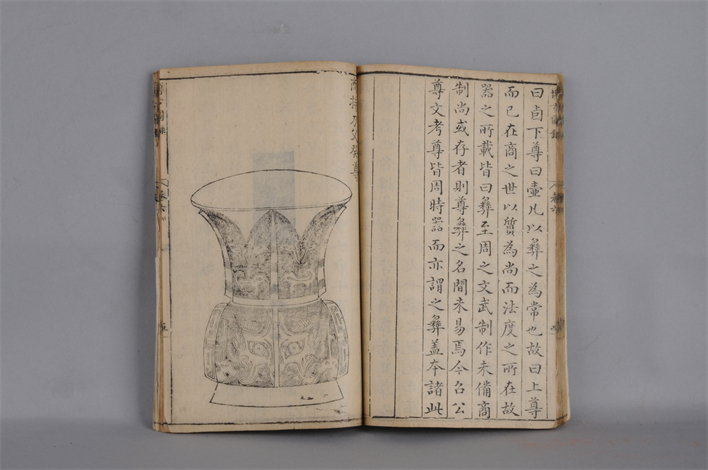 曰卣下尊曰壺凡以彝之為常也故曰上尊
而已在商之世以質為尚而法度之所在故
器之所載皆曰彝至周之文武制作未備商
制尚或存者則尊彝之名間未易焉今召公
尊文考尊皆周時器而亦謂之彝蓋本諸此